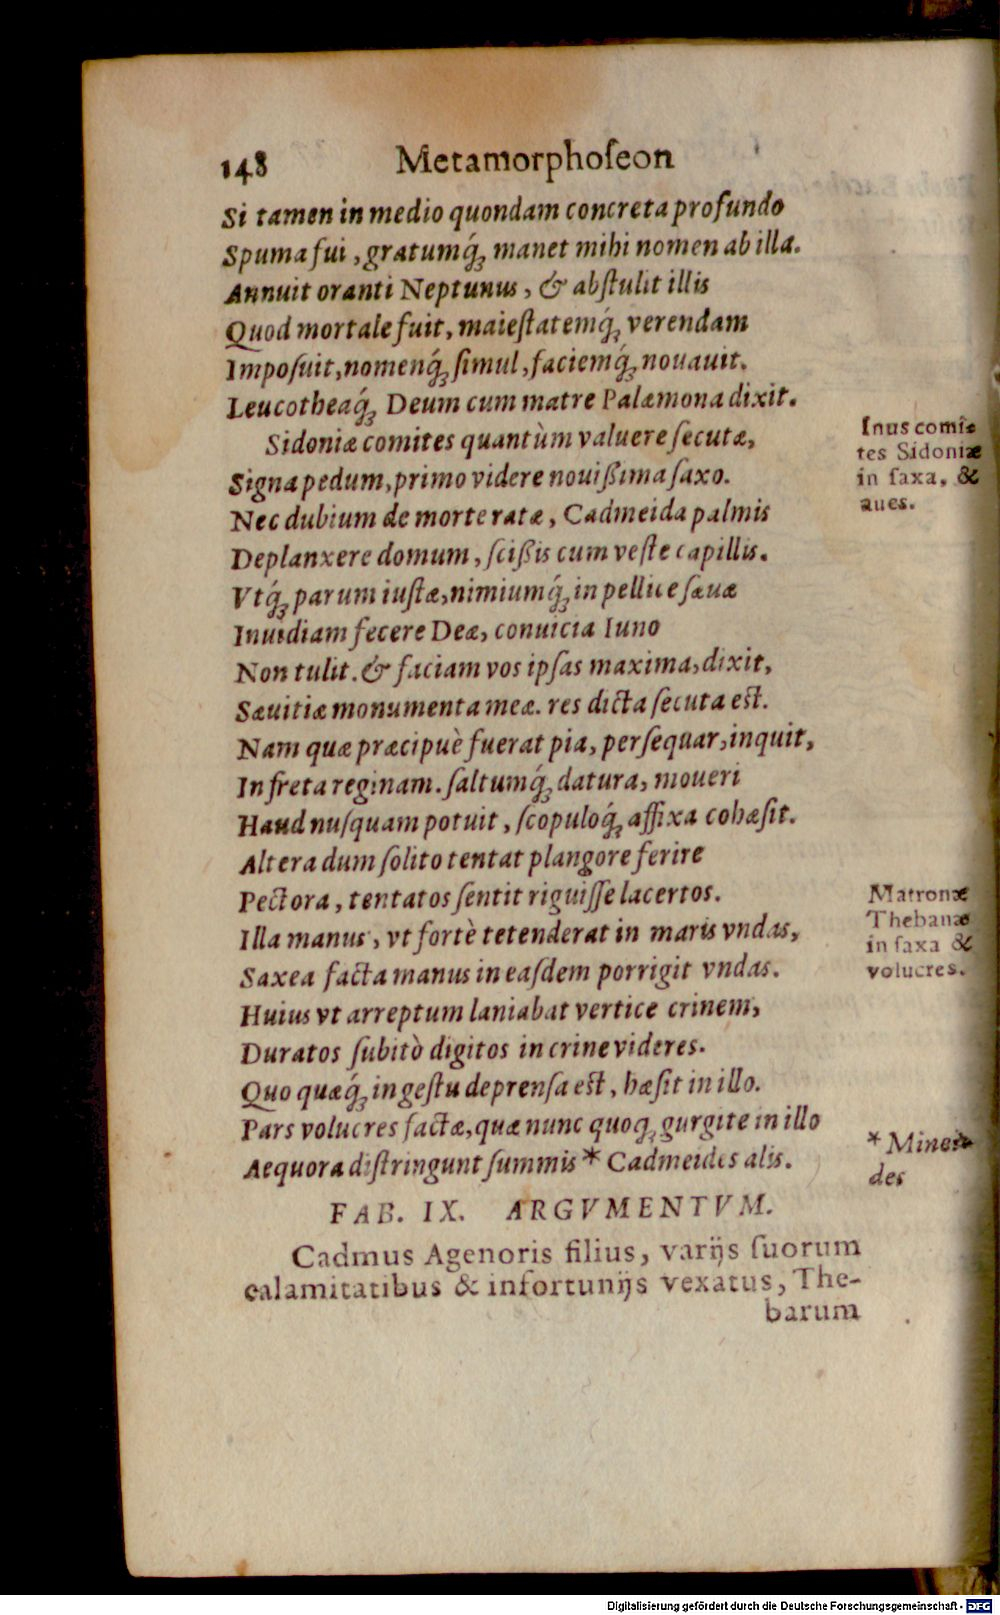 148 Metamorphoſeon
Si tamen in medio quondam concreta profundo
Spuma fui, gratumq́; manet mihi nomen ab illa.
Annuit oranti Neptunus, & abſtulit illis
Quod mortale fuit, maieſtatemq́; verendam
Impoſuit, nomenq́; ſimul, faciemq́; nouauit.
Leucotheaq́; Deum cum matre Palæmona dixit.
Sidoniæ comites quantùm valuere ſecutæ,
Signa pedum, primo videre nouißima ſaxo.
Nec dubium de morte ratæ, Cadmeida palmis
Deplanxere domum, ſcißis cum veſte capillis.
Vtq́; parum iuſtæ, nimiumq́; in pellice ſæuæ
Inuidiam fecere Deæ, conuicia Iuno
Non tulit. & faciam vos ipſas maxima, dixit,
Sæuitiæ monumenta meæ. res dicta ſecuta eſt.
Nam quæ præcipuè fuerat pia, perſequar, inquit,
In freta reginam. ſaltumq́; datura, moueri
Haud nuſquam potuit, ſcopuloq́; affixa cohæſit.
Altera dum ſolito tentat plangore ferire
Pectora, tentatos ſentit riguiſſe lacertos.
Illa manus, vt fortè tetenderat in maris vndas,
Saxea facta manus in eaſdem porrigit vndas.
Huius vt arreptum laniabat vertice crinem,
Duratos ſubitò digitos in crine videres.
Quo quæq́; in geſtu deprenſa eſt, hæſit in illo.
Pars volucres factæ, quæ nunc quoq; gurgite in illo
Aequora diſtringunt ſummis * Cadmeides alis.
FAB. IX. ARGVMENTVM.
Cadmus Agenoris filius, varijs ſuorum
calamitatibus & infortunijs vexatus, The-
barum
Inus comi-
tes Sidoniæ
in ſaxa, &
aues.
Matronæ
Thebanæ
in ſaxa &
volucres.
* Minei-
des
Digitalisierung gefördert durch die Deutsche Forschungsgemeinschaft - DFG